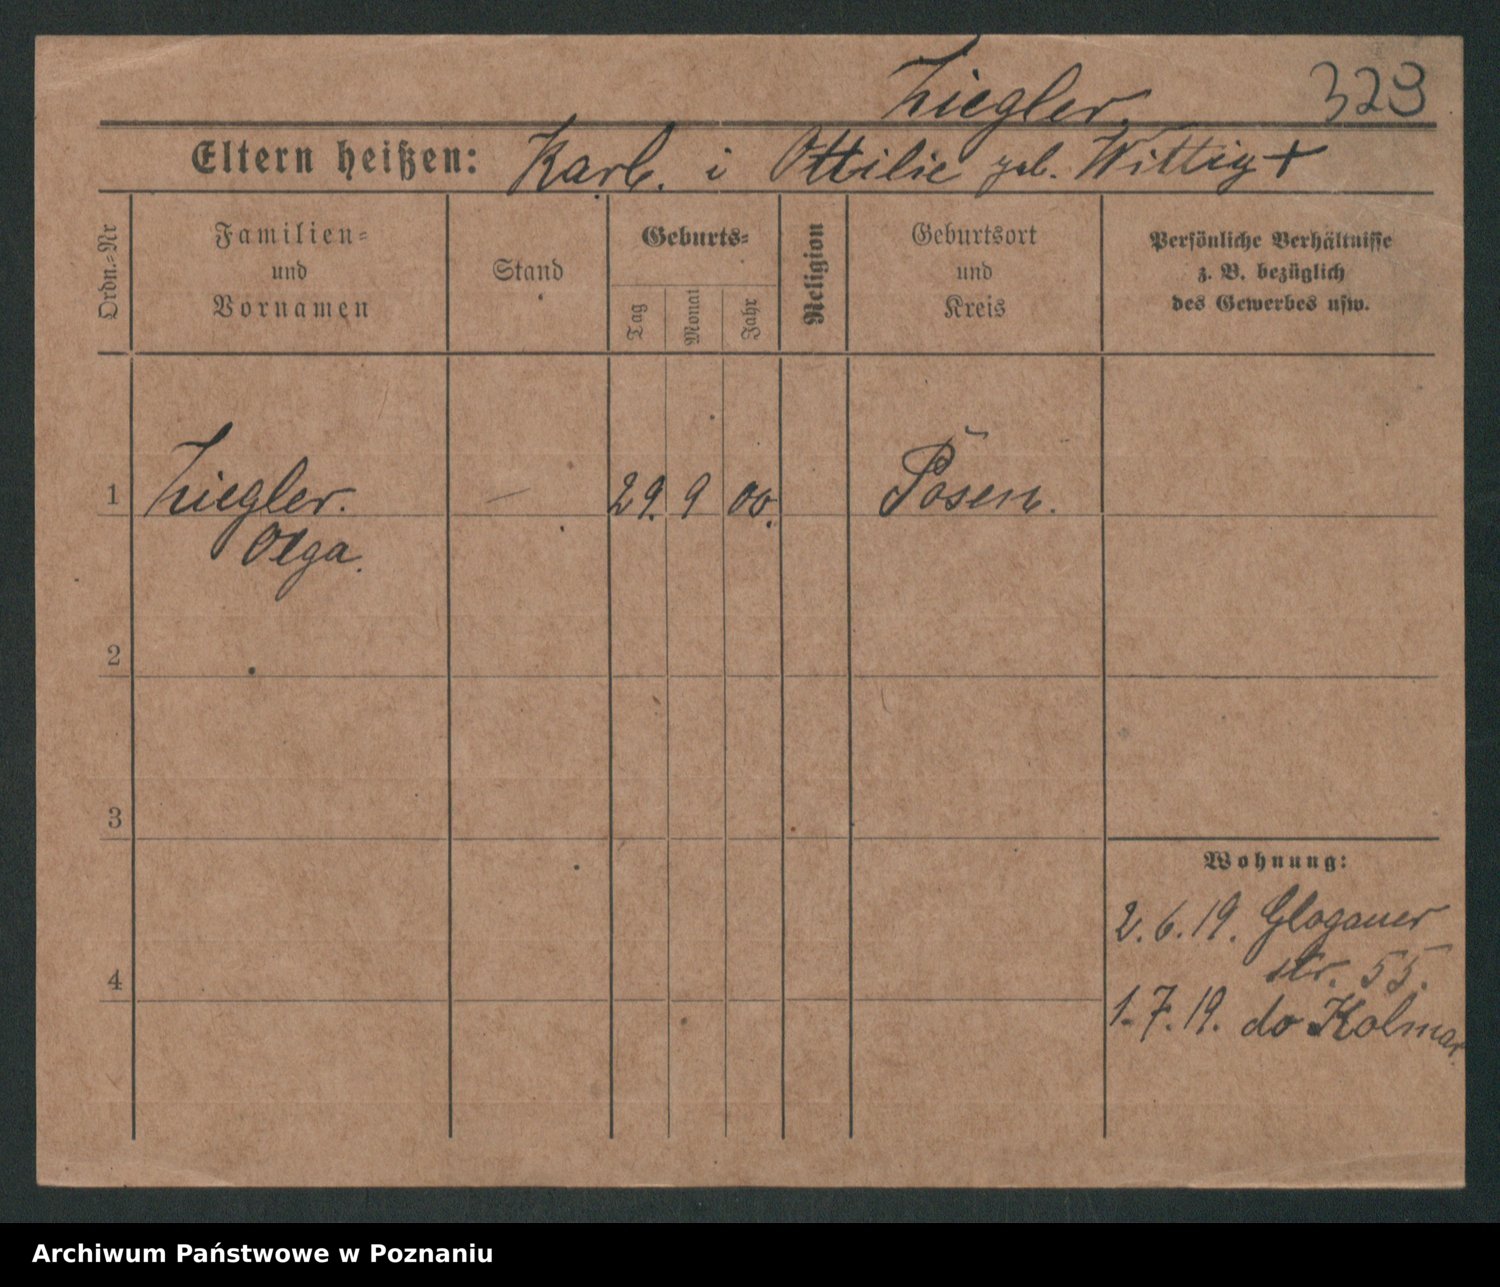 Ziegler. 323
Eltern heißen: Karl. i Ottilie geb. Wittig +
Ordn.-Nr
Familien-
und
Vornamen
Stand
Geburts-
Tag
Monat
Jahr
Religion
Geburtsort
und
Kreis
Persönliche Verhältnisse
z. B. bezüglich
des Gewerbes usw.
1 Ziegler. — 29. 9 00. Posen.
Olga.
2
3
Wohnung:
2.6.19. Glogauer
str. 55.
4
1.7.19. do Kolmar.
Archiwum Państwowe w Poznaniu